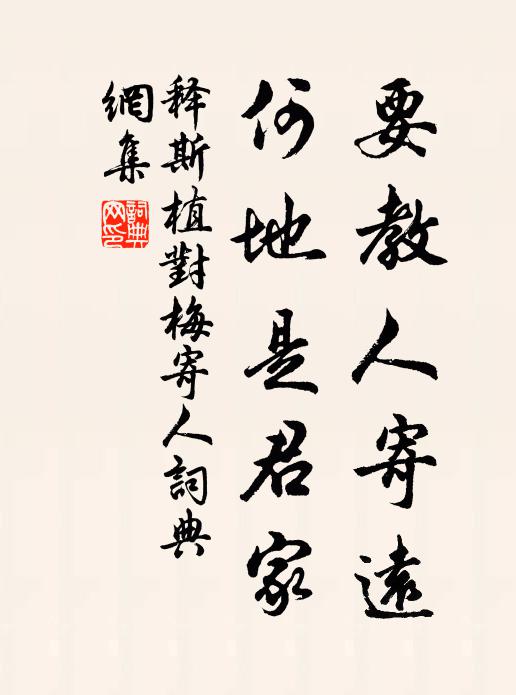 要教人寄遠
何地是君家
釋斯植對梅寄人詞典
網集
詞典網印